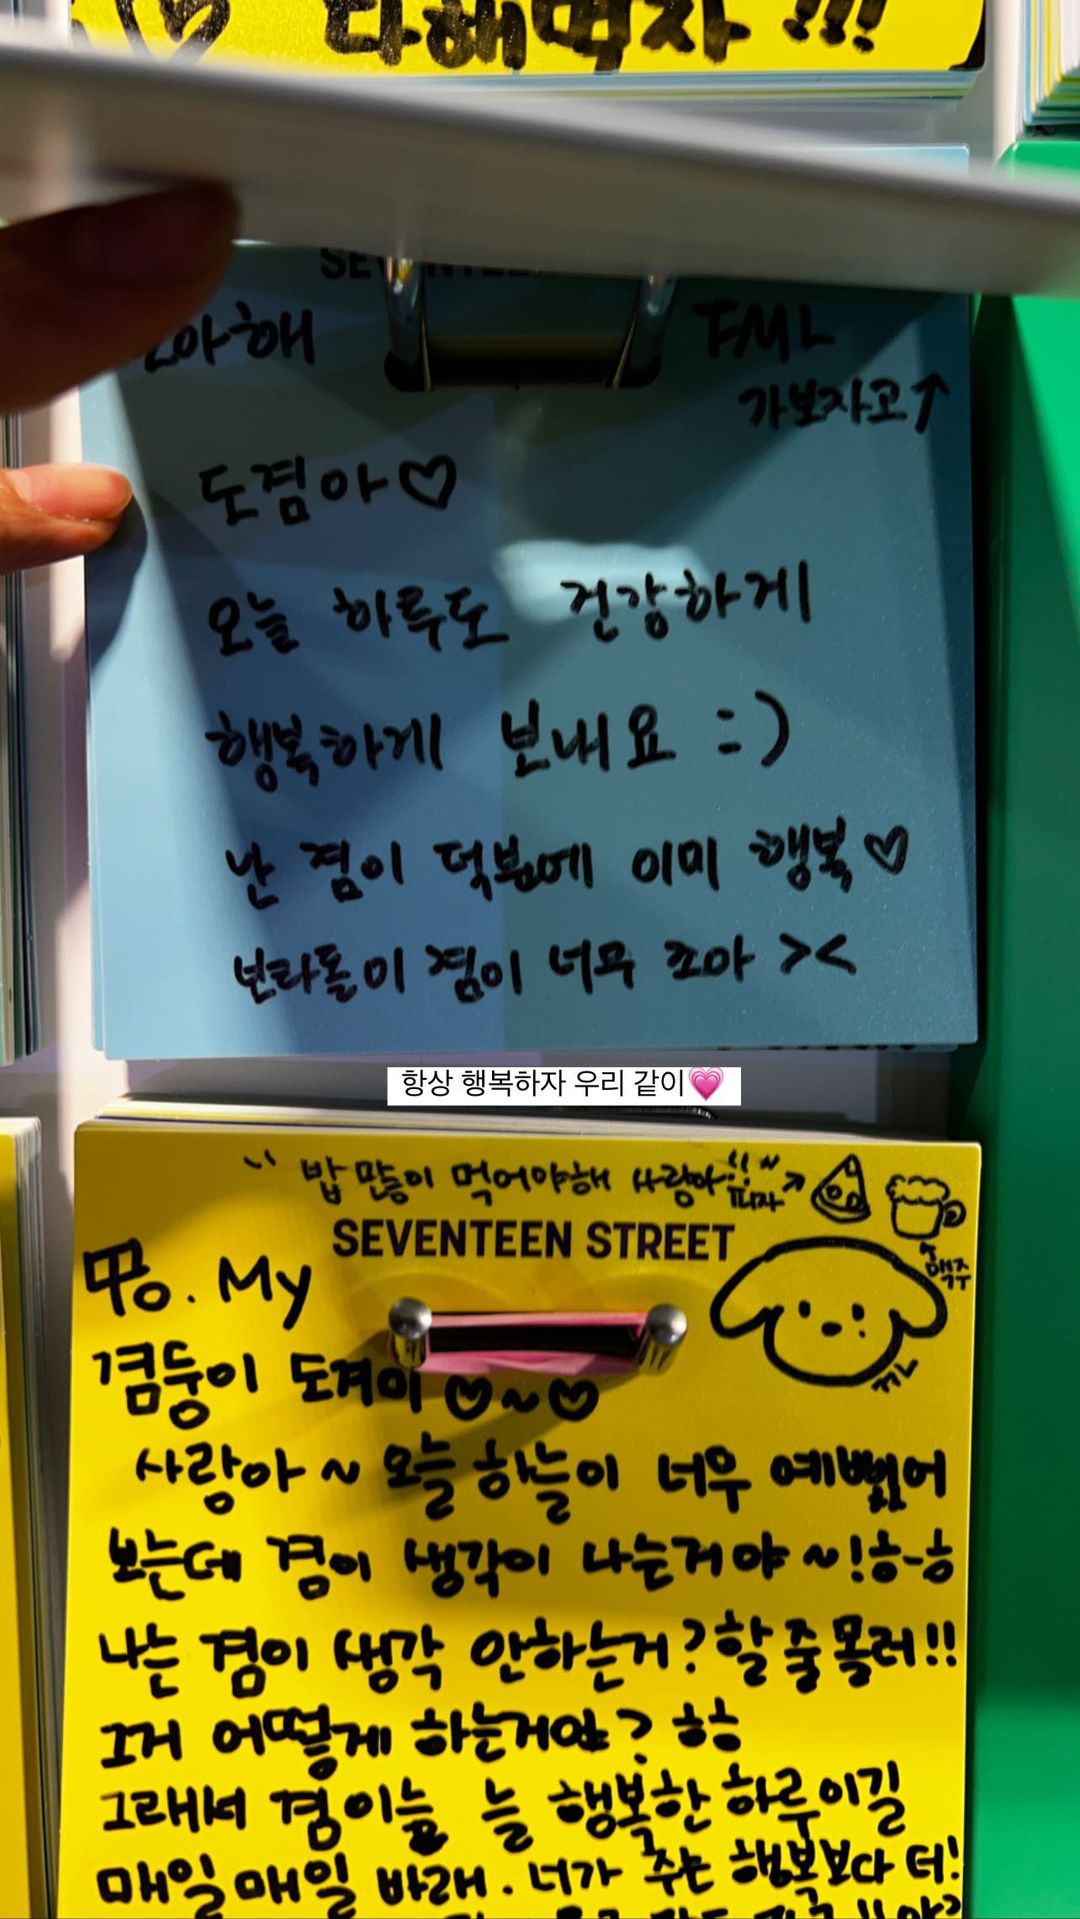 다해먹자 !!!
SEVENTEEN
FML
가보자고↑
도겸아♡
오늘 하루도 건강하게
행복하게 보내요 :)
난 겸이 덕분에 이미 행복♡
보라돌이 겸이 너무 조아 ><
항상 행복하자 우리 같이💗
밥 많이 먹어야해 사랑아!!~
피자
맥주
SEVENTEEN STREET
My
겸둥이 도겨미 ♡~♡
사랑아~ 오늘 하늘이 너무 예뻤어
보는데 겸이 생각이 나는거야~! ㅎ-ㅎ
나는 겸이 생각 안하는거? 할 줄 몰러!!
그거 어떻게 하는거야? ㅎㅎ
그래서 겸이늘 늘 행복한 하루이길
매일매일 바래. 너가 주는 행복보다 더!